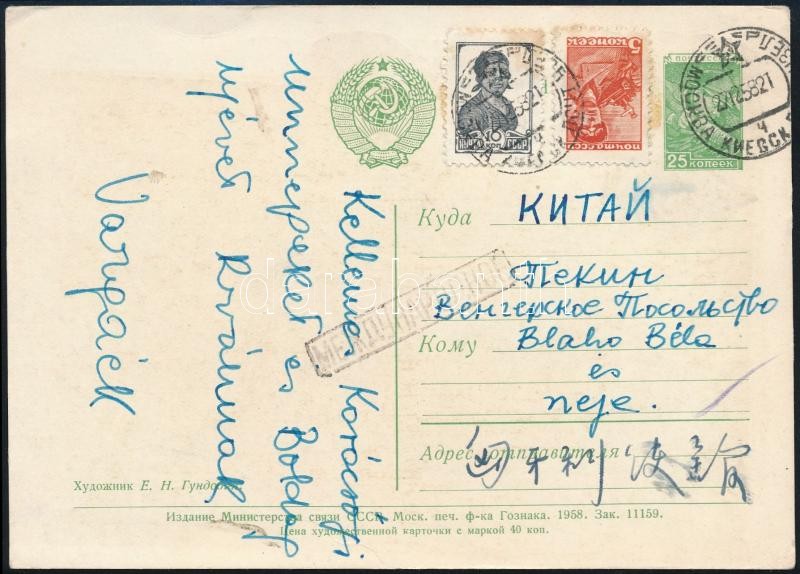 Kellemes Karácsonyi
ünnepeket és Boldog
újévet kívánnak
Vargáék
10
КОП.
5 копеек
почта СССР
25 копеек
МОСКВА КИЕВСК
Куда КИТАЙ
Пекин
Венгерское Посольство
Кому Blaho Béla
és
neje.
МЕЖДУНАРОДНОЕ
Адрес отправителя
匈牙利 使馆
Художник Е. Н. Гундобин
Издание Министерства связи СССР. Моск. печ. ф-ка Гознака. 1958. Зак. 11159.
Цена художественной карточки с маркой 40 коп.